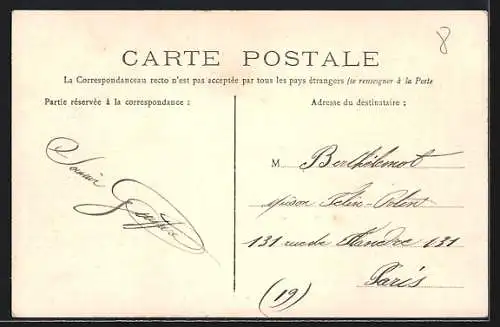 8
CARTE POSTALE
La Correspondanceau recto n'est pas acceptée par tous les pays étrangers (se renseigner à la Poste
Partie réservée à la correspondance :
Adresse du destinataire :
Souvenir
M. Berthélemot
131 rue de Flandre 131
Paris
(19)